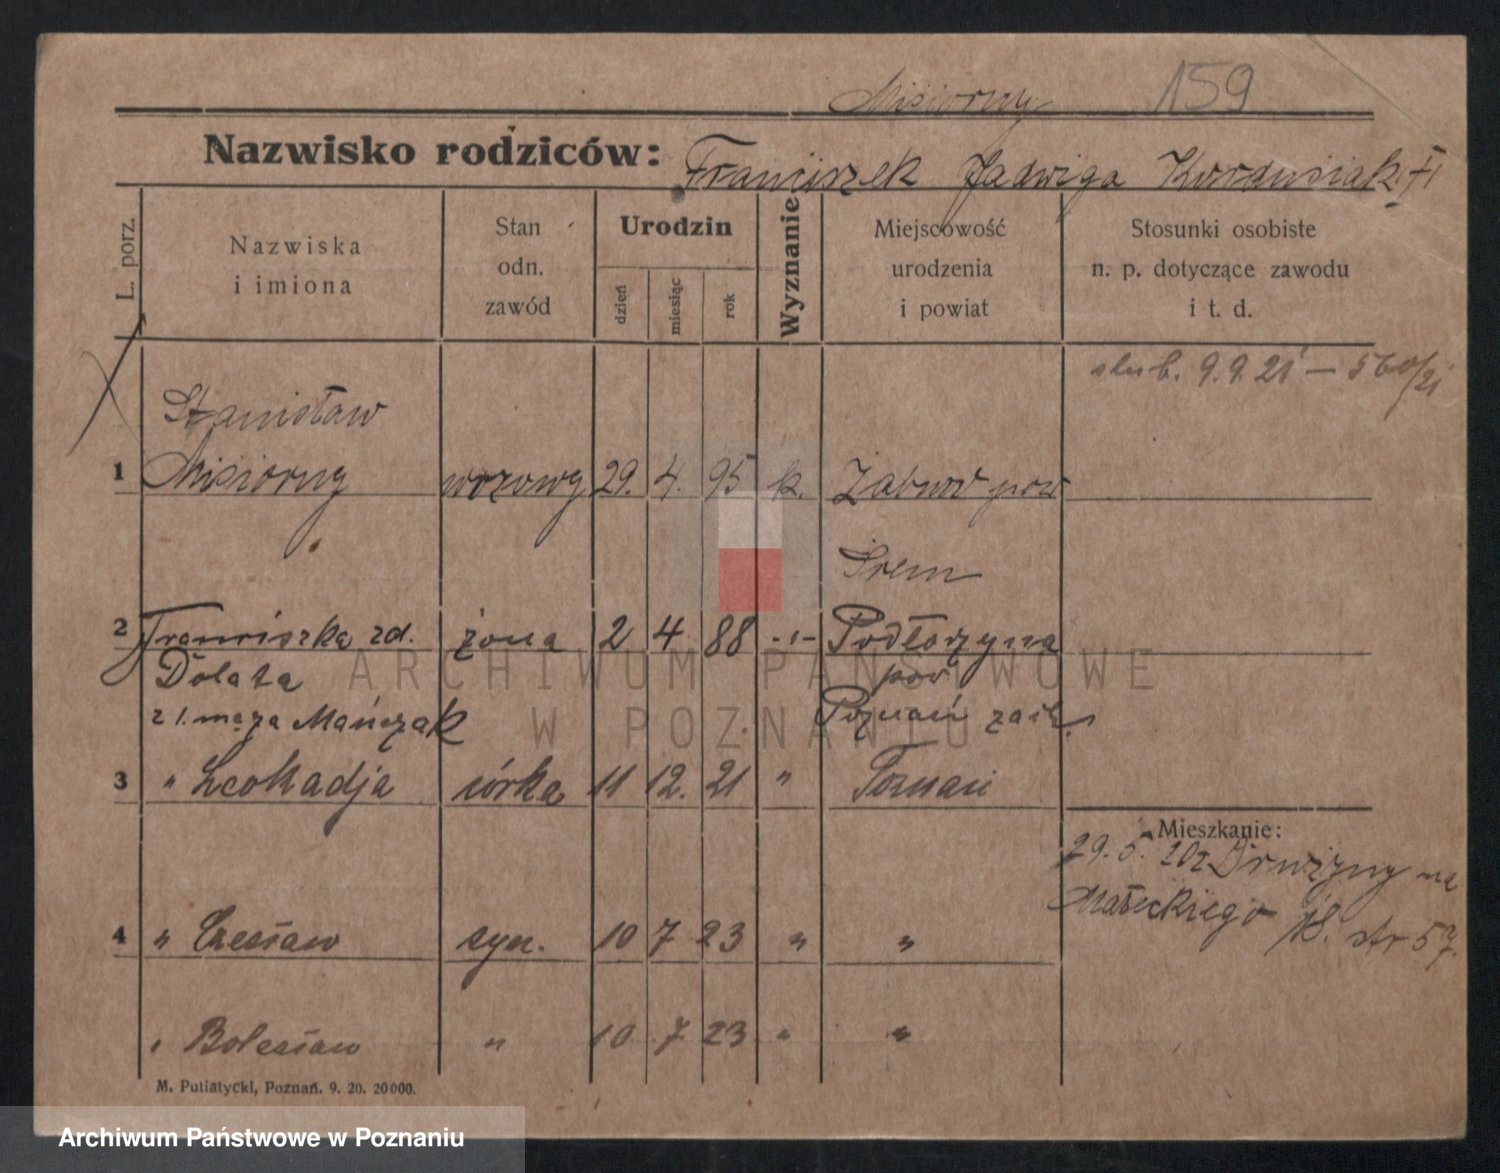 Misiorny 159
Nazwisko rodziców: Franciszek Jadwiga Kordusiak
L. porz.
Nazwiska i imiona
Stan odn. zawód
Urodzin
dzień miesiąc rok
Wyznanie
Miejscowość urodzenia i powiat
Stosunki osobiste n. p. dotyczące zawodu i t. d.
ślub. 9.9.21 – 560/21
Stanisław
1 Misiorny wozowy 29. 4. 95 k. Żabno pow
Śrem
2 Franciszka zd. żona 2 4 88 -"- Podłozyna
Dolata pow
z 1. męża Mańczak Poznań zach.
3 " Leokadja córka 11 12. 21 " Poznań
Mieszkanie:
29. 5. 20 z Drużyny na
Małeckiego 18. str 57.
4 " Czesław syn. 10 7 23 " "
" Bolesław " 10 7 23 " "
M. Putiatycki, Poznań. 9. 20. 20000.
ARCHIWUM PAŃSTWOWE
W POZNANIU
Archiwum Państwowe w Poznaniu